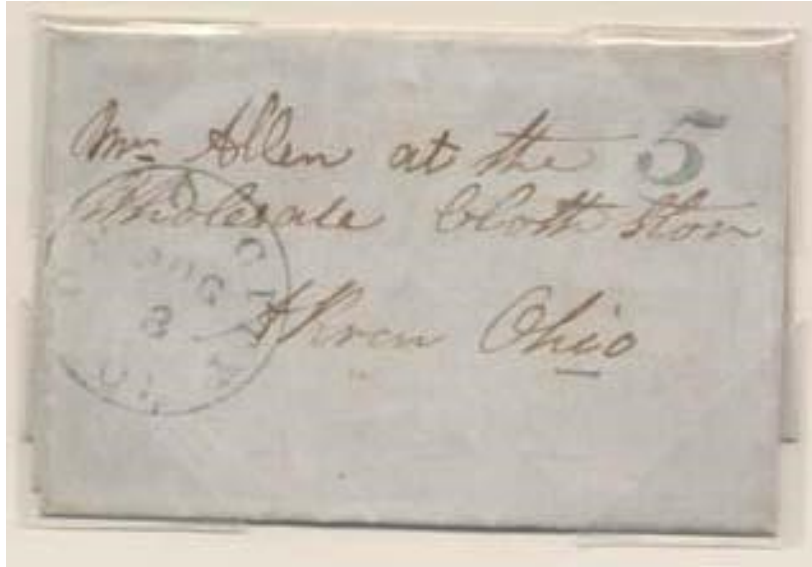 Mr Allen at the 5
Wholesale Cloth Stor
Akron Ohio
AUG
8